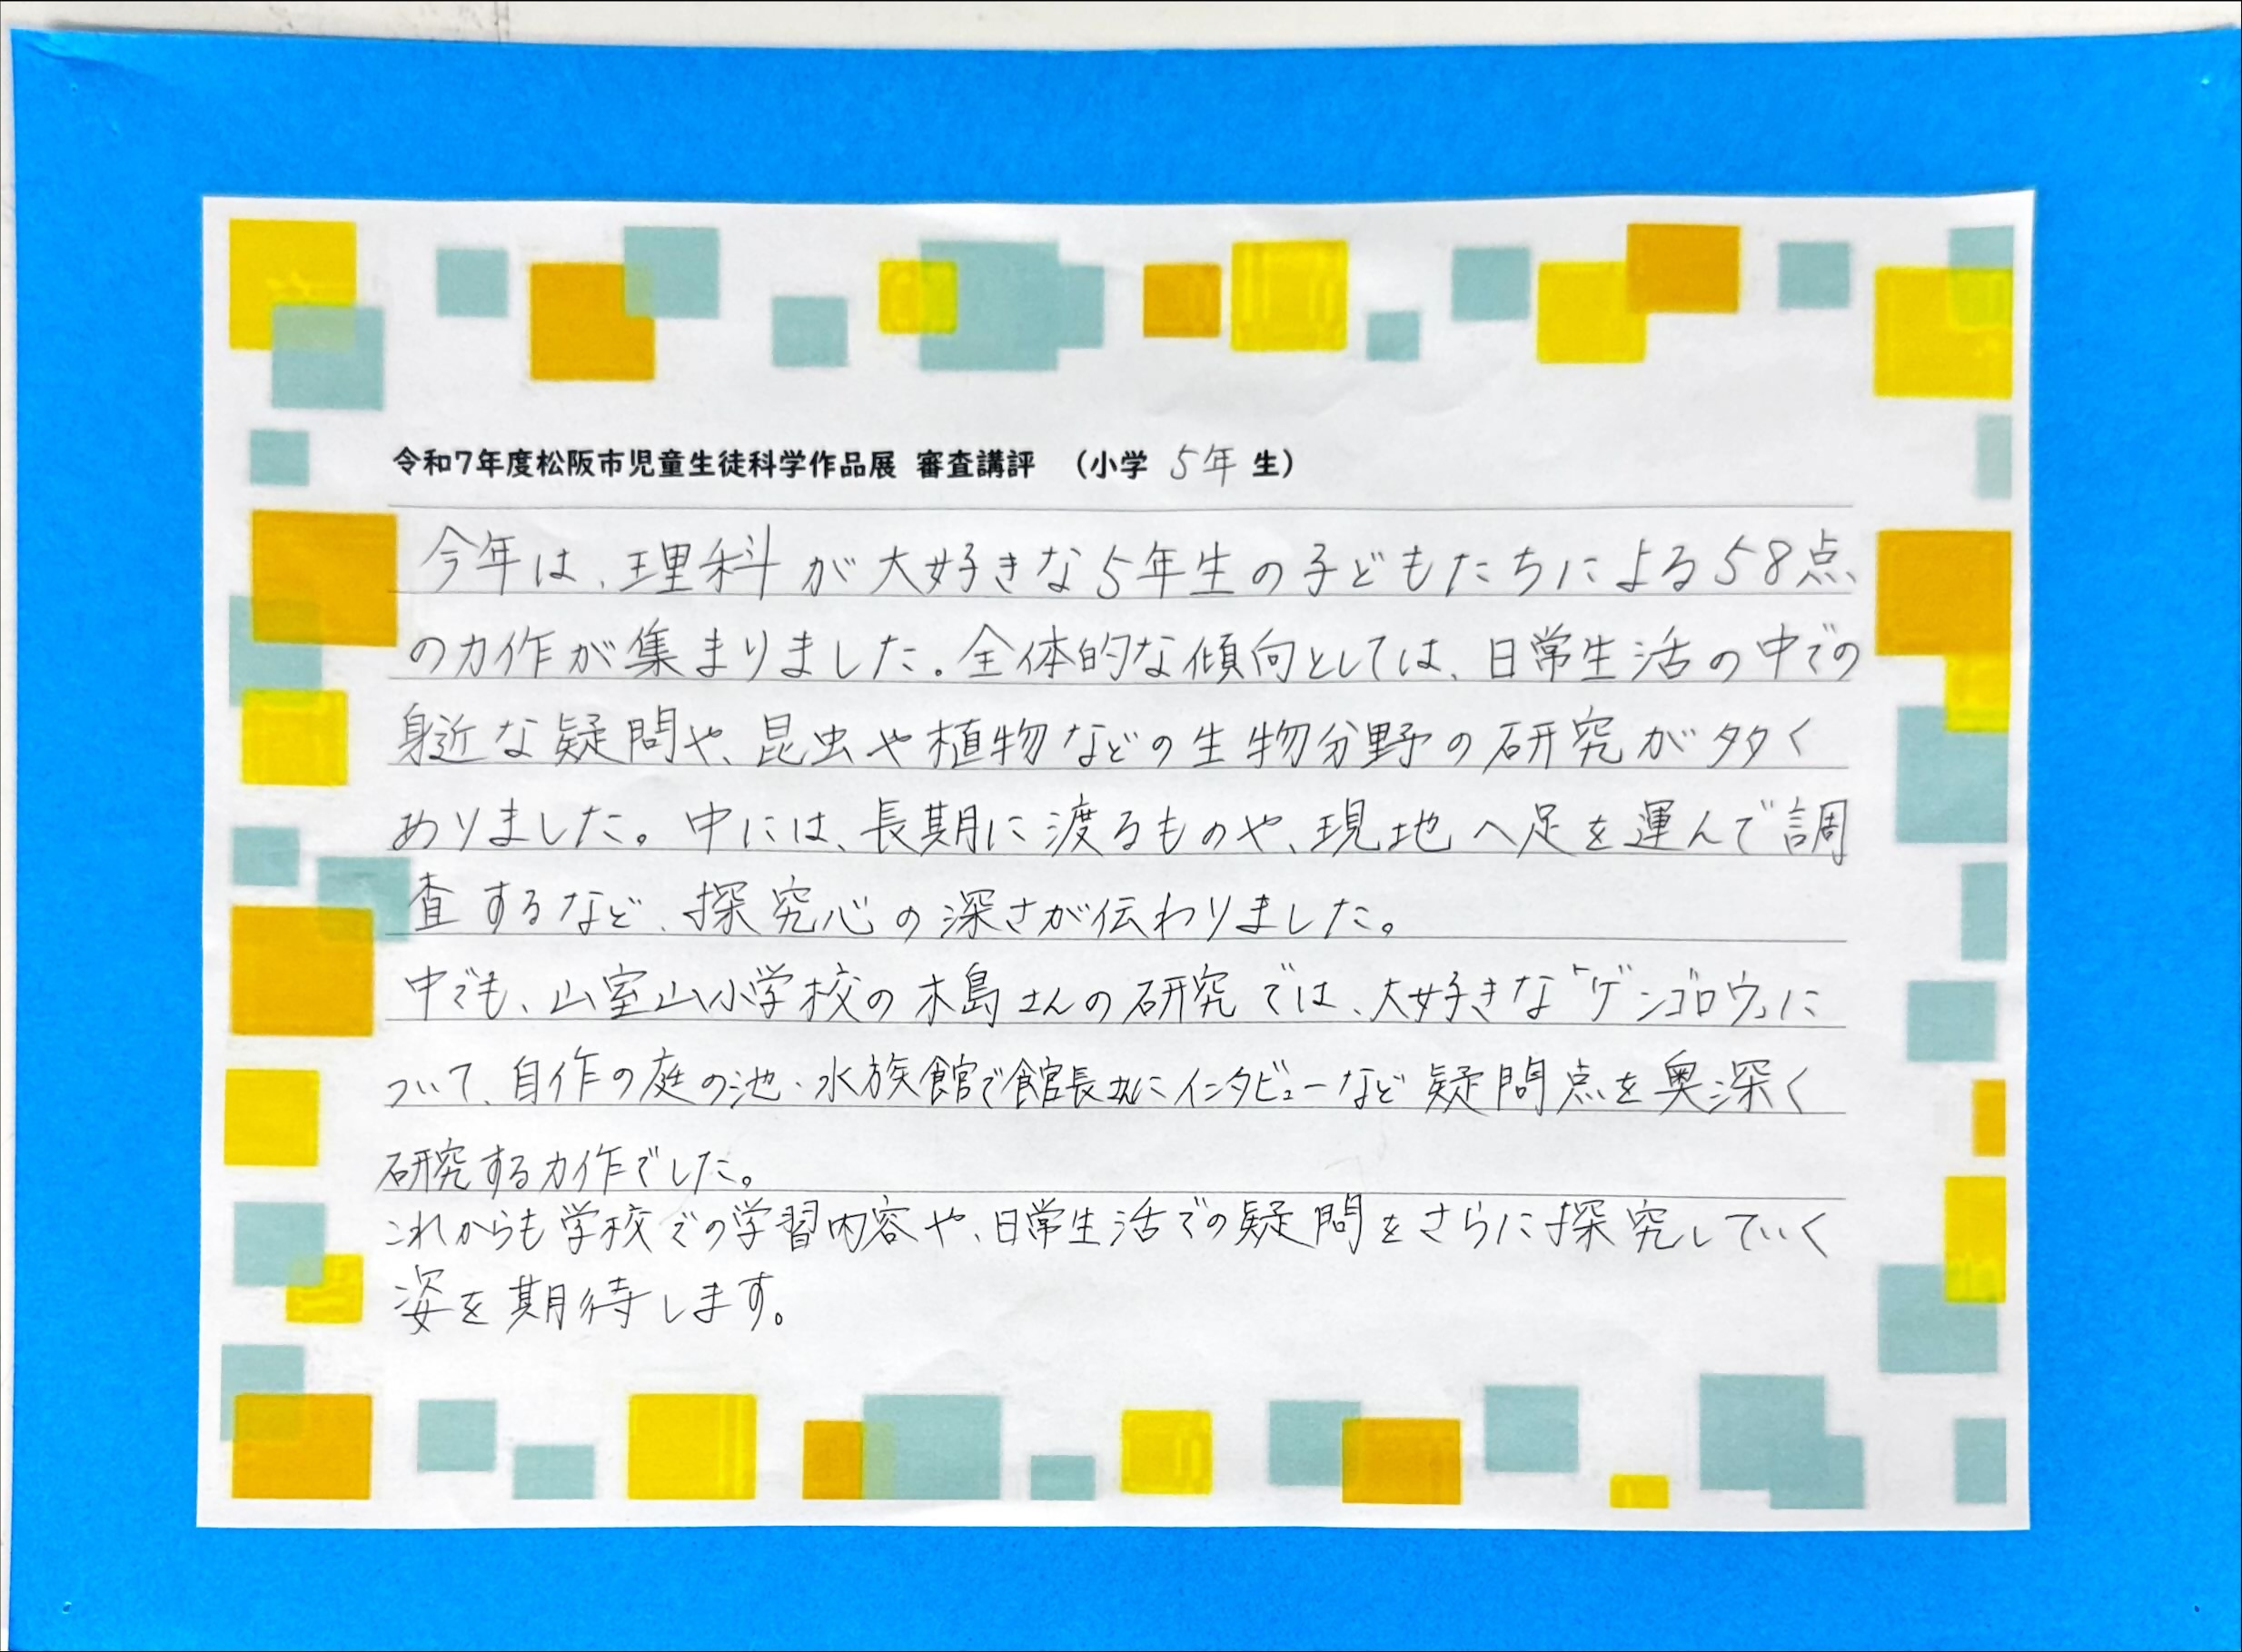 令和7年度松阪市児童生徒科学作品展 審査講評 （小学 5年 生）
今年は、理科が大好きな5年生の子どもたちによる58点
の力作が集まりました。全体的な傾向としては、日常生活の中での
身近な疑問や、昆虫や植物などの生物分野の研究が多く
ありました。中には、長期に渡るものや、現地へ足を運んで調
査するなど、探究心の深さが伝わりました。
中でも、山室山小学校の木島さんの研究では、大好きな「ゲンゴロウ」に
ついて、自作の庭の池・水族館で館長さんにインタビューなど疑問点を奥深く
研究する力作でした。
これからも学校での学習内容や、日常生活での疑問をさらに探究していく
姿を期待します。